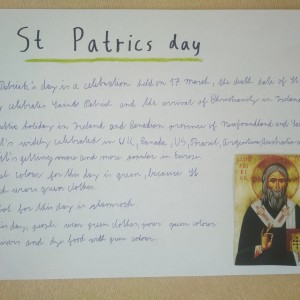 St Patrics day
Patrick's day is a celebration held on 17 march, the death date of St
celebrates Saint Patrick and the arrival of Christianity in Ireland
public holiday in Ireland and Canadian province of Newfoundland and
It's widely celebrated in UK, Canada, US, Brasil, Argentina, Australia
It's getting more and more popular in Europe.
colour for this day is green, because St
wore green clothes.
for this day is shamrock.
day, people wear green clothes, green colour
and dye food with green colour.